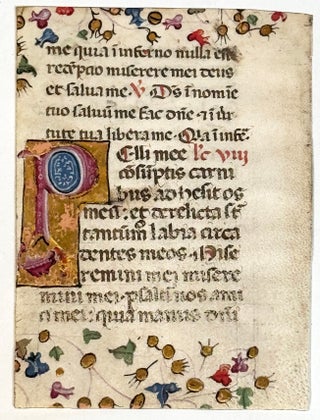 me quia i inferno nulla est
redẽptio miserere mei deus
et salva me ℣ Ds ĩ nomĩe
tuo salvũ me fac dñe ⁊ ĩ vir
tute tua libera me. Quia ĩ inf̃.
Pelli mee lc̃ viii
cõsũptis carni
bus adhesit os
meũ: et derelicta st̃
tantũm̃ labia circa
dentes meos Mise
remini mei misere
mini mei saltẽ vos ami
ci mei: quia manus dñi